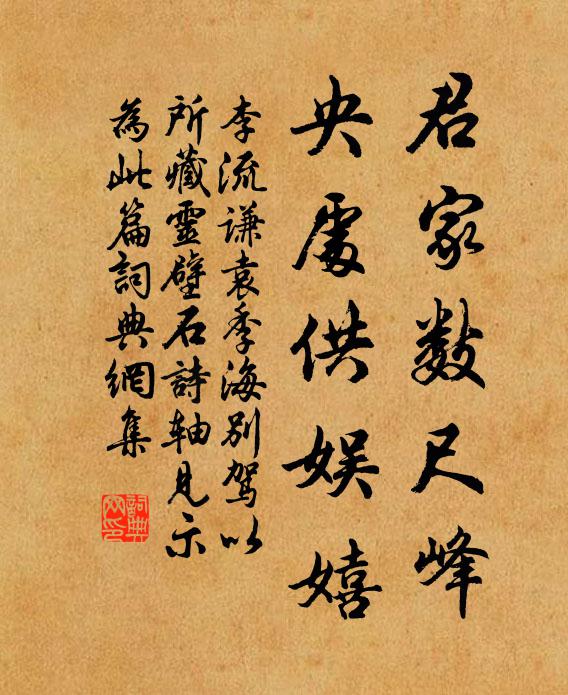 君家数尺峰
央處供娱嬉
李流谦袁季海别驾以
所藏靈壁石詩軸見示
為此篇詞典網集
詞典網印